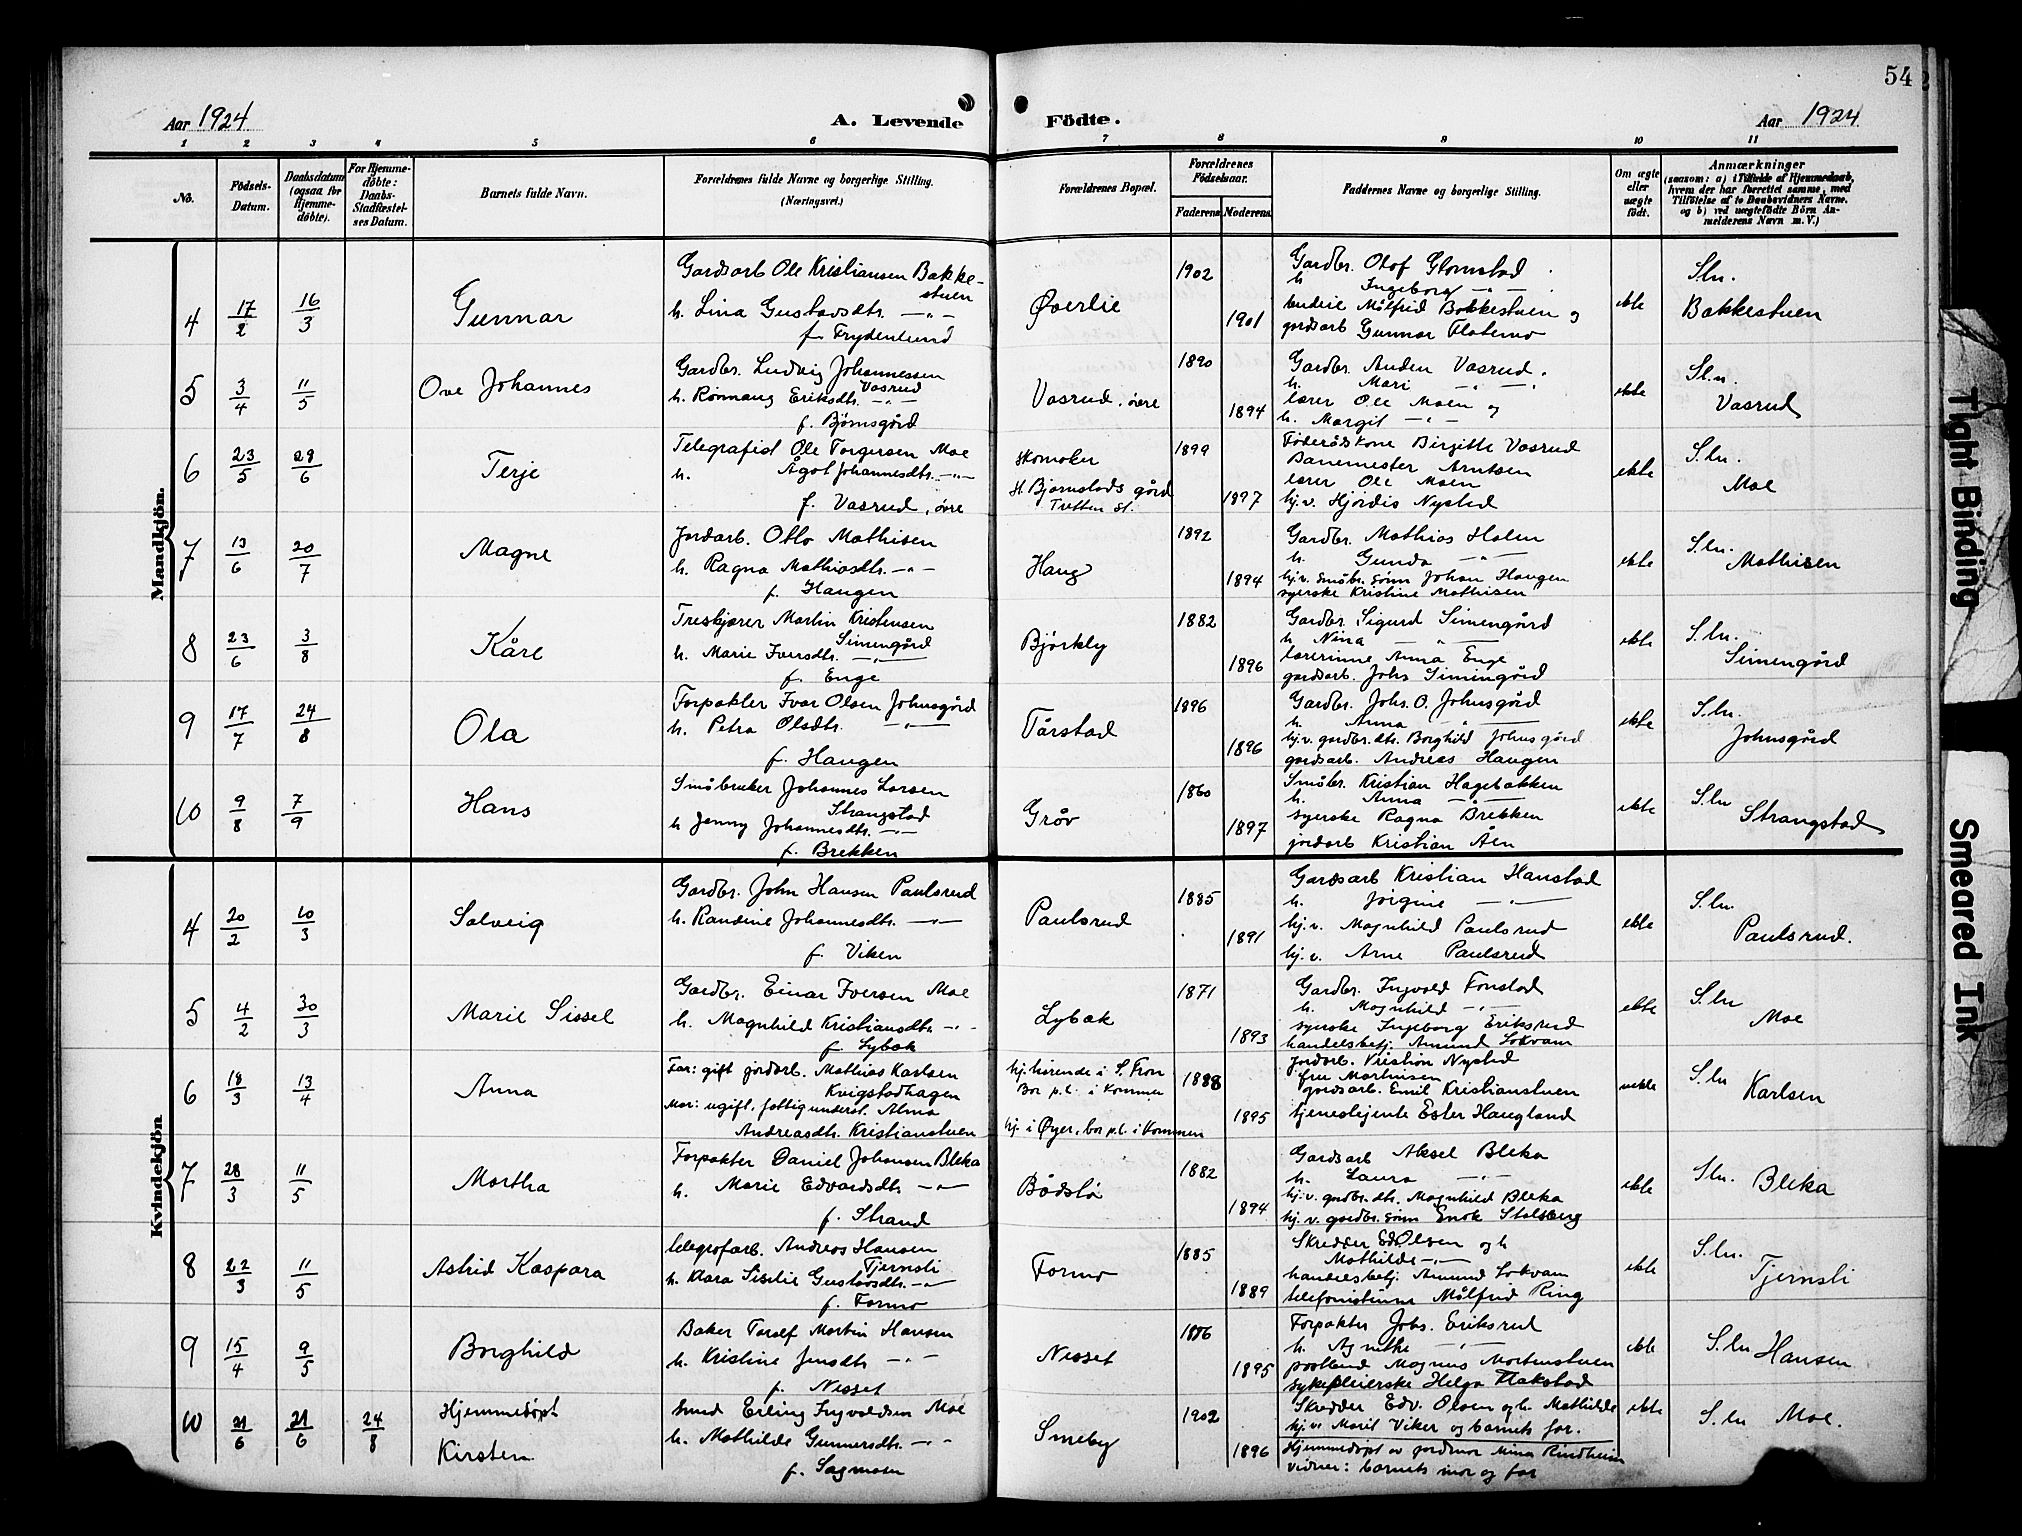 54
Aar 1924
A. Levende
Födte.
Aar 1924
1 2 3 4 5 6 7 8 9 10 11
No.
Födsels-Datum.
Daabsdatum (ogsaa for Hjemmedöbte).
For Hjemmedöbte: Daabs-Stadfæstelses Datum.
Barnets fulde Navn.
Forældrenes fulde Navne og borgerlige Stilling. (Næringsvei.)
Forældrenes Bopæl.
Forældrenes Födselsaar.
Faderens Moderens
Faddernes Navne og borgerlige Stilling.
Om ægte eller uægte födt.
Anmærkninger
(saasom: a) i Tilfælde af Hjemmedaab,
hvem der har forrettet samme, med
Tilföielse af to Daabsvidners Navne.
og b) ved uægtefödte Börn Anmelderens Navn m. V.)
Mandkjön.
4 17/2 16/3 Gunnar
Gardsarb Ole Kristiansen Bakkestuen
h. Lina Gustavsdtr. —"—
f. Frydenlund
Øverlie
1902
1901
Gardbr. Olof Glomstad
h. Ingeborg —"—
Målfrid Bakkestuen og
gardsarb Gunnar Flatemo
ekte
S.ln.
Bakkestuen
5 3/4 11/5 Ove Johannes
Gardbr. Ludvig Johannessen
Vasrud
h. Rønnaug Eriksdtr. —"—
f. Bjørnsgård
Vasrud, øvre
1890
1894
Gardbr. Anden Vasrud.
h. Mari —"—
lærer Ole Moen og
h. Margit —"—
ekte
S.ln.
Vasrud
6 23/5 29/6 Terje
Telegrafist Ole Torgersen Moe
h. Ågot Johannesdtr. —"—
f. Vasrud, øvre
skomaker
H. Bjørnstads gård
Tretten st.
1899
1897
Føderådskone Birgitte Vasrud
Banemester Arntsen
lærer Ole Moen
hj.v. Hjørdis Nysted
ekte
S.ln.
Moe
7 13/6 20/7 Magne
Jordarb. Otto Mathisen
h. Ragna Mathiasdtr. —"—
f. Haugen
Haug
1892
1894
Gardbr. Mathias Holen
h. Gunda —"—
hj.v. småbr. sønn Johan Haugen
syerske Kristine Mathisen
ekte
S.ln.
Mathisen
8 23/6 3/8 Kåre
Treskjærer Martin Kristensen
Simengård
h. Marie Iversdtr. —"—
f. Enge
Bjørkly
1882
1896
Gardbr Sigurd Simengård
h Nina —"—
lærerinne Anna Enge
gardsarb. Johs Simengård
ekte
S.ln.
Simengård
9 17/7 24/8 Ola
Forpakter Ivar Olsen Johnsgård
h. Petra Olsdtr. —"—
f. Haugen
Tårstad
1896
1896
Gardbr. Johs. O. Johnsgård
h. Anna —"—
hj.v. gardbr.dtr. Borghild Johnsgård
gardsarb. Andreas Haugen
ekte
S.ln.
Johnsgård
10 9/8 7/9 Hans
Småbruker Johannes Larsen
Strangstad
h Jenny Johannesdtr. —"—
f. Brekken
Grøv
1860
1897
Småbr. Kristian Hagebakken
h. Anna —"—
syerske Ragna Brekken
jordarb Kristian Åen
ekte
S.ln
Strangstad
Kvindekjön
4 20/2 10/3 Solveig
Gardbr. John Hansen Paulsrud
h. Randine Johannesdtr. —"—
f. Viken
Paulsrud
1885
1891
Gardsarb Kristian Hanstad
h. Jørgine —"—
hj.v. Magnhild Paulsrud
hj.v. Arne Paulsrud
ekte
S.ln.
Paulsrud.
5 4/2 30/3 Marie Sissel
Gardbr. Einar Iversen Moe
h. Magnhild Kristiansdtr. —"—
f. Lybæk
Lybæk
1871
1893
Gardbr. Ingvald Fonstad
h. Magnhild —"—
syerske Ingeborg Eriksrud
handelsbetj. Amund Lokvam
ekte
S.ln
Moe
6 18/3 13/4 Anna
Far: gift jordarb. Mathias Karlsen
Kvigstadhagen
Mor: ugift, fattigunderst. Alma
Andreasdtr. Kristianstuen
hj.hørende i S. Fron
Bor p.t. i Kommen
hj. i Øyer, bor p.t. i Kommen
1888
1895
Jordarb. Kristian Nysted
fru Marthinsen
gardsarb. Emil Kristianstuen
tjenestejente Ester Haugland
uekte
S.ln
Karlsen
7 28/3 11/5 Martha
Forpakter Daniel Johansen Bleka
h. Marie Edvardsdtr. —"—
f. Strand
Bådstø
1882
1894
Gardsarb Aksel Bleka
h. Laura —"—
hj.v. gardbr.dtr. Magnhild Bleka
hj.v. gardbr.sønn Enok Stalsberg
ekte
S.ln.
Bleka
8 22/3 11/5 Astrid Kaspara
telegrafarb. Andreas Hansen
Tjernsli
h. Klara Sisilie Gustavsdtr. —"—
f. Formo
Formo
1885
1889
Skredder Ed. Olsen og h
Mathilde —"—
handelsbetj. Amund Lokvam
telefonistinne Målfrid Ring
ekte
S.ln.
Tjernsli
9 15/4 9/5 Borghild
Baker Toralf Martin Hansen
h. Kristine Jensdtr —"—
f. Nisset
Nisset
1886
1895
Forpakter Johs. Eriksrud
h. Agnethe —"—
postbud Magnus Mortenstuen
sykepleierske Helga Flakstad
ekte
S.ln
Hansen
10 21/6 21/6 24/8 Hjemmedøpt
Kirsten
smed Erling Ingvaldsen Moe
h. Mathilde Gunnersdtr. —"—
f. Sagmoen
Smeby
1902
1896
Skredder Edv. Olsen og h. Mathilde
hj.v. Marit Viker og barnets far.
Hjemmedøpt av jordmor Mina Rindheim
vidner: barnets mor og far
ekte
S.ln Moe.
Tight Binding
Smeared Ink